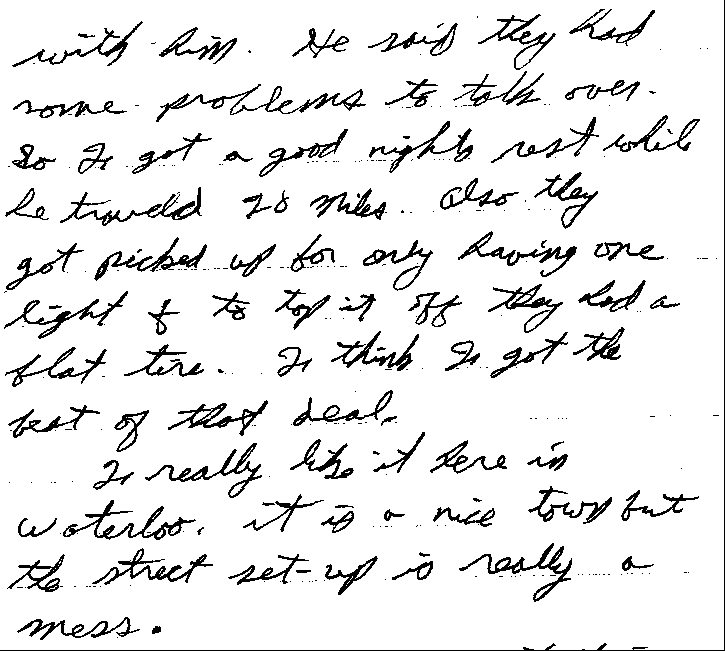 with him. He said they had
some problems to talk over.
So I got a good nights rest while
he traveld 28 miles. Also they
got picked up for only having one
light & to top it off they had a
flat tire. I think I got the
best of that deal.
I really like it here in
Waterloo. it is a nice town but
the street set-up is really a
mess.